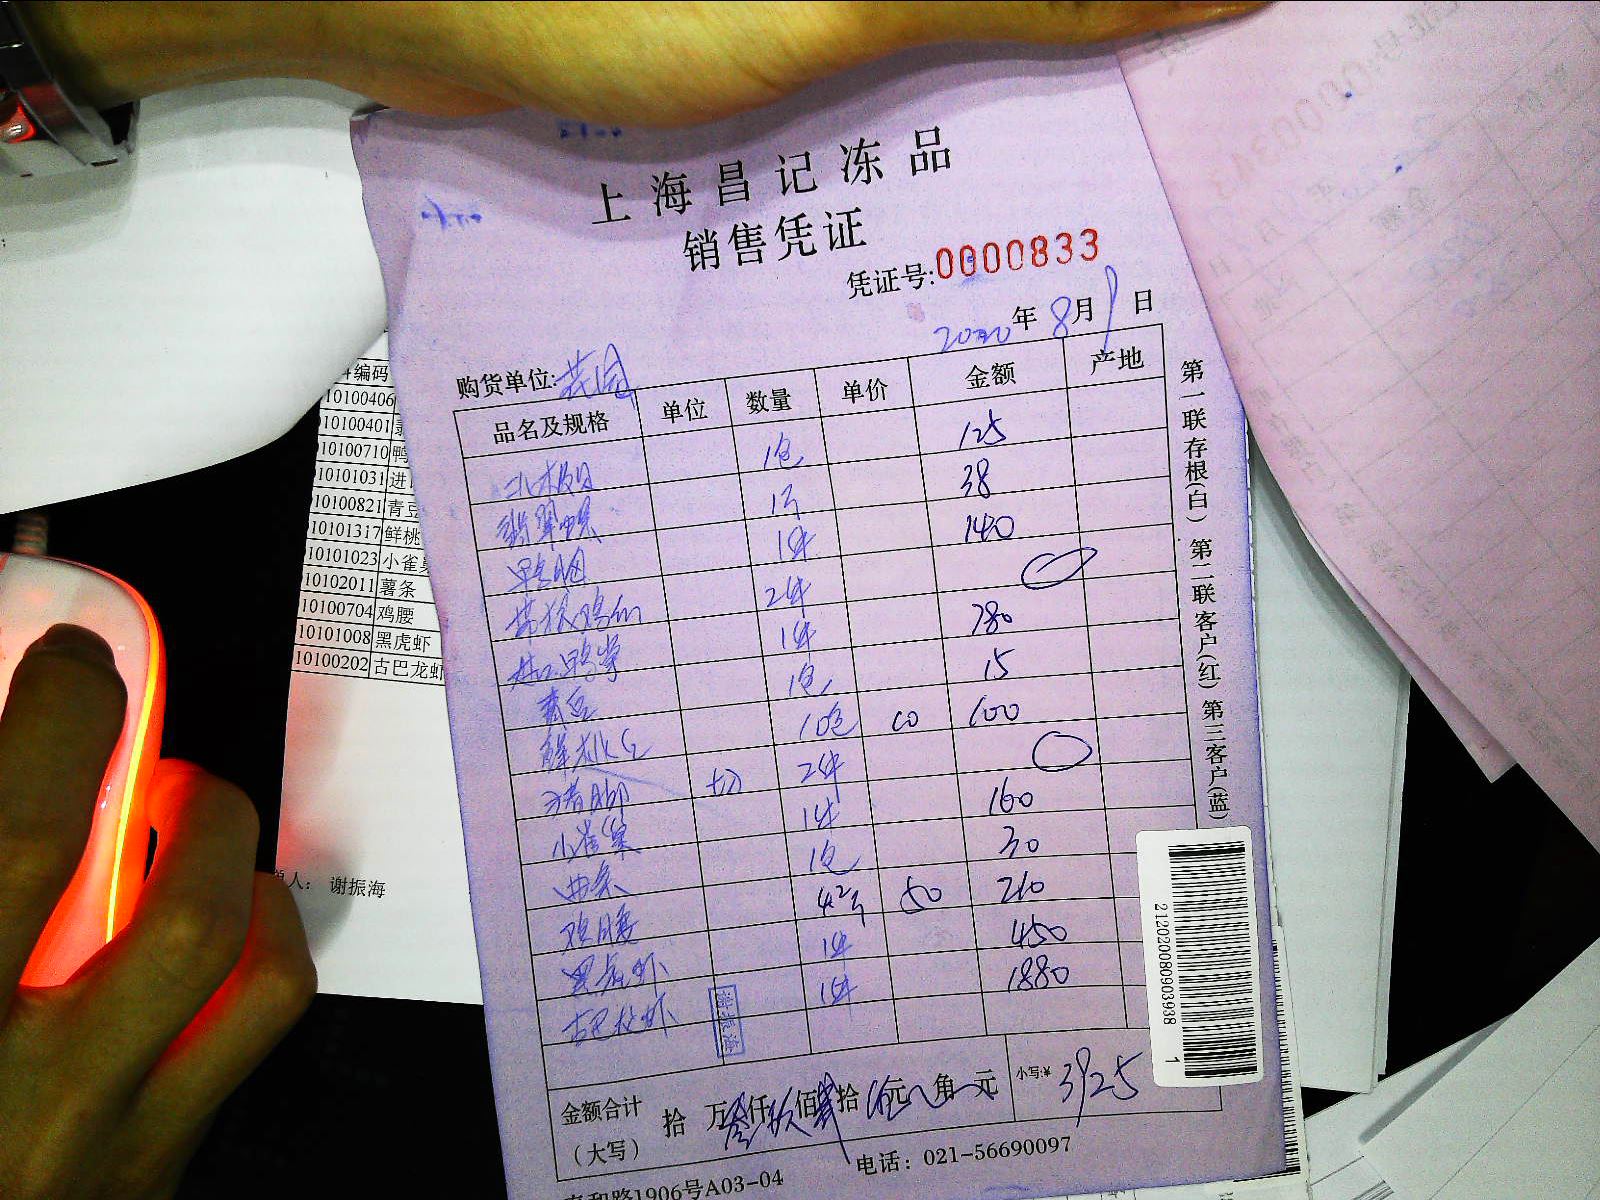 上海昌记冻品
销售凭证
凭证号:0000833
2020年8月9日
购货单位:
品名及规格 单位 数量 单价 金额 产地
北极贝 1包 125
翡翠螺 1斤 38
鸭胗 1件 140
2件
进口鸭掌 1件 780
青豆 1包 15
鲜桃仁 10包 10 100
猪脚 切 2件
小雀巢 1件 160
1包 30
鸡腰 4.2斤 50 210
黑虎虾 1件 450
古巴龙虾 1件 1880
谢振海
金额合计
(大写)
拾 万叁仟玖佰贰拾伍元 角 元
小写:¥ 3925
1906号A03-04
电话: 021-56690097
第一联存根(白) 第二联客户(红) 第三客户(蓝)
21202008090393 8 1
编码
10100406
10100401
10100710 鸭
10101031 进
10100821 青豆
10101317 鲜桃
10101023 小雀巢
10102011 薯条
10100704 鸡腰
10101008 黑虎虾
10100202 古巴龙虾
单人: 谢振海